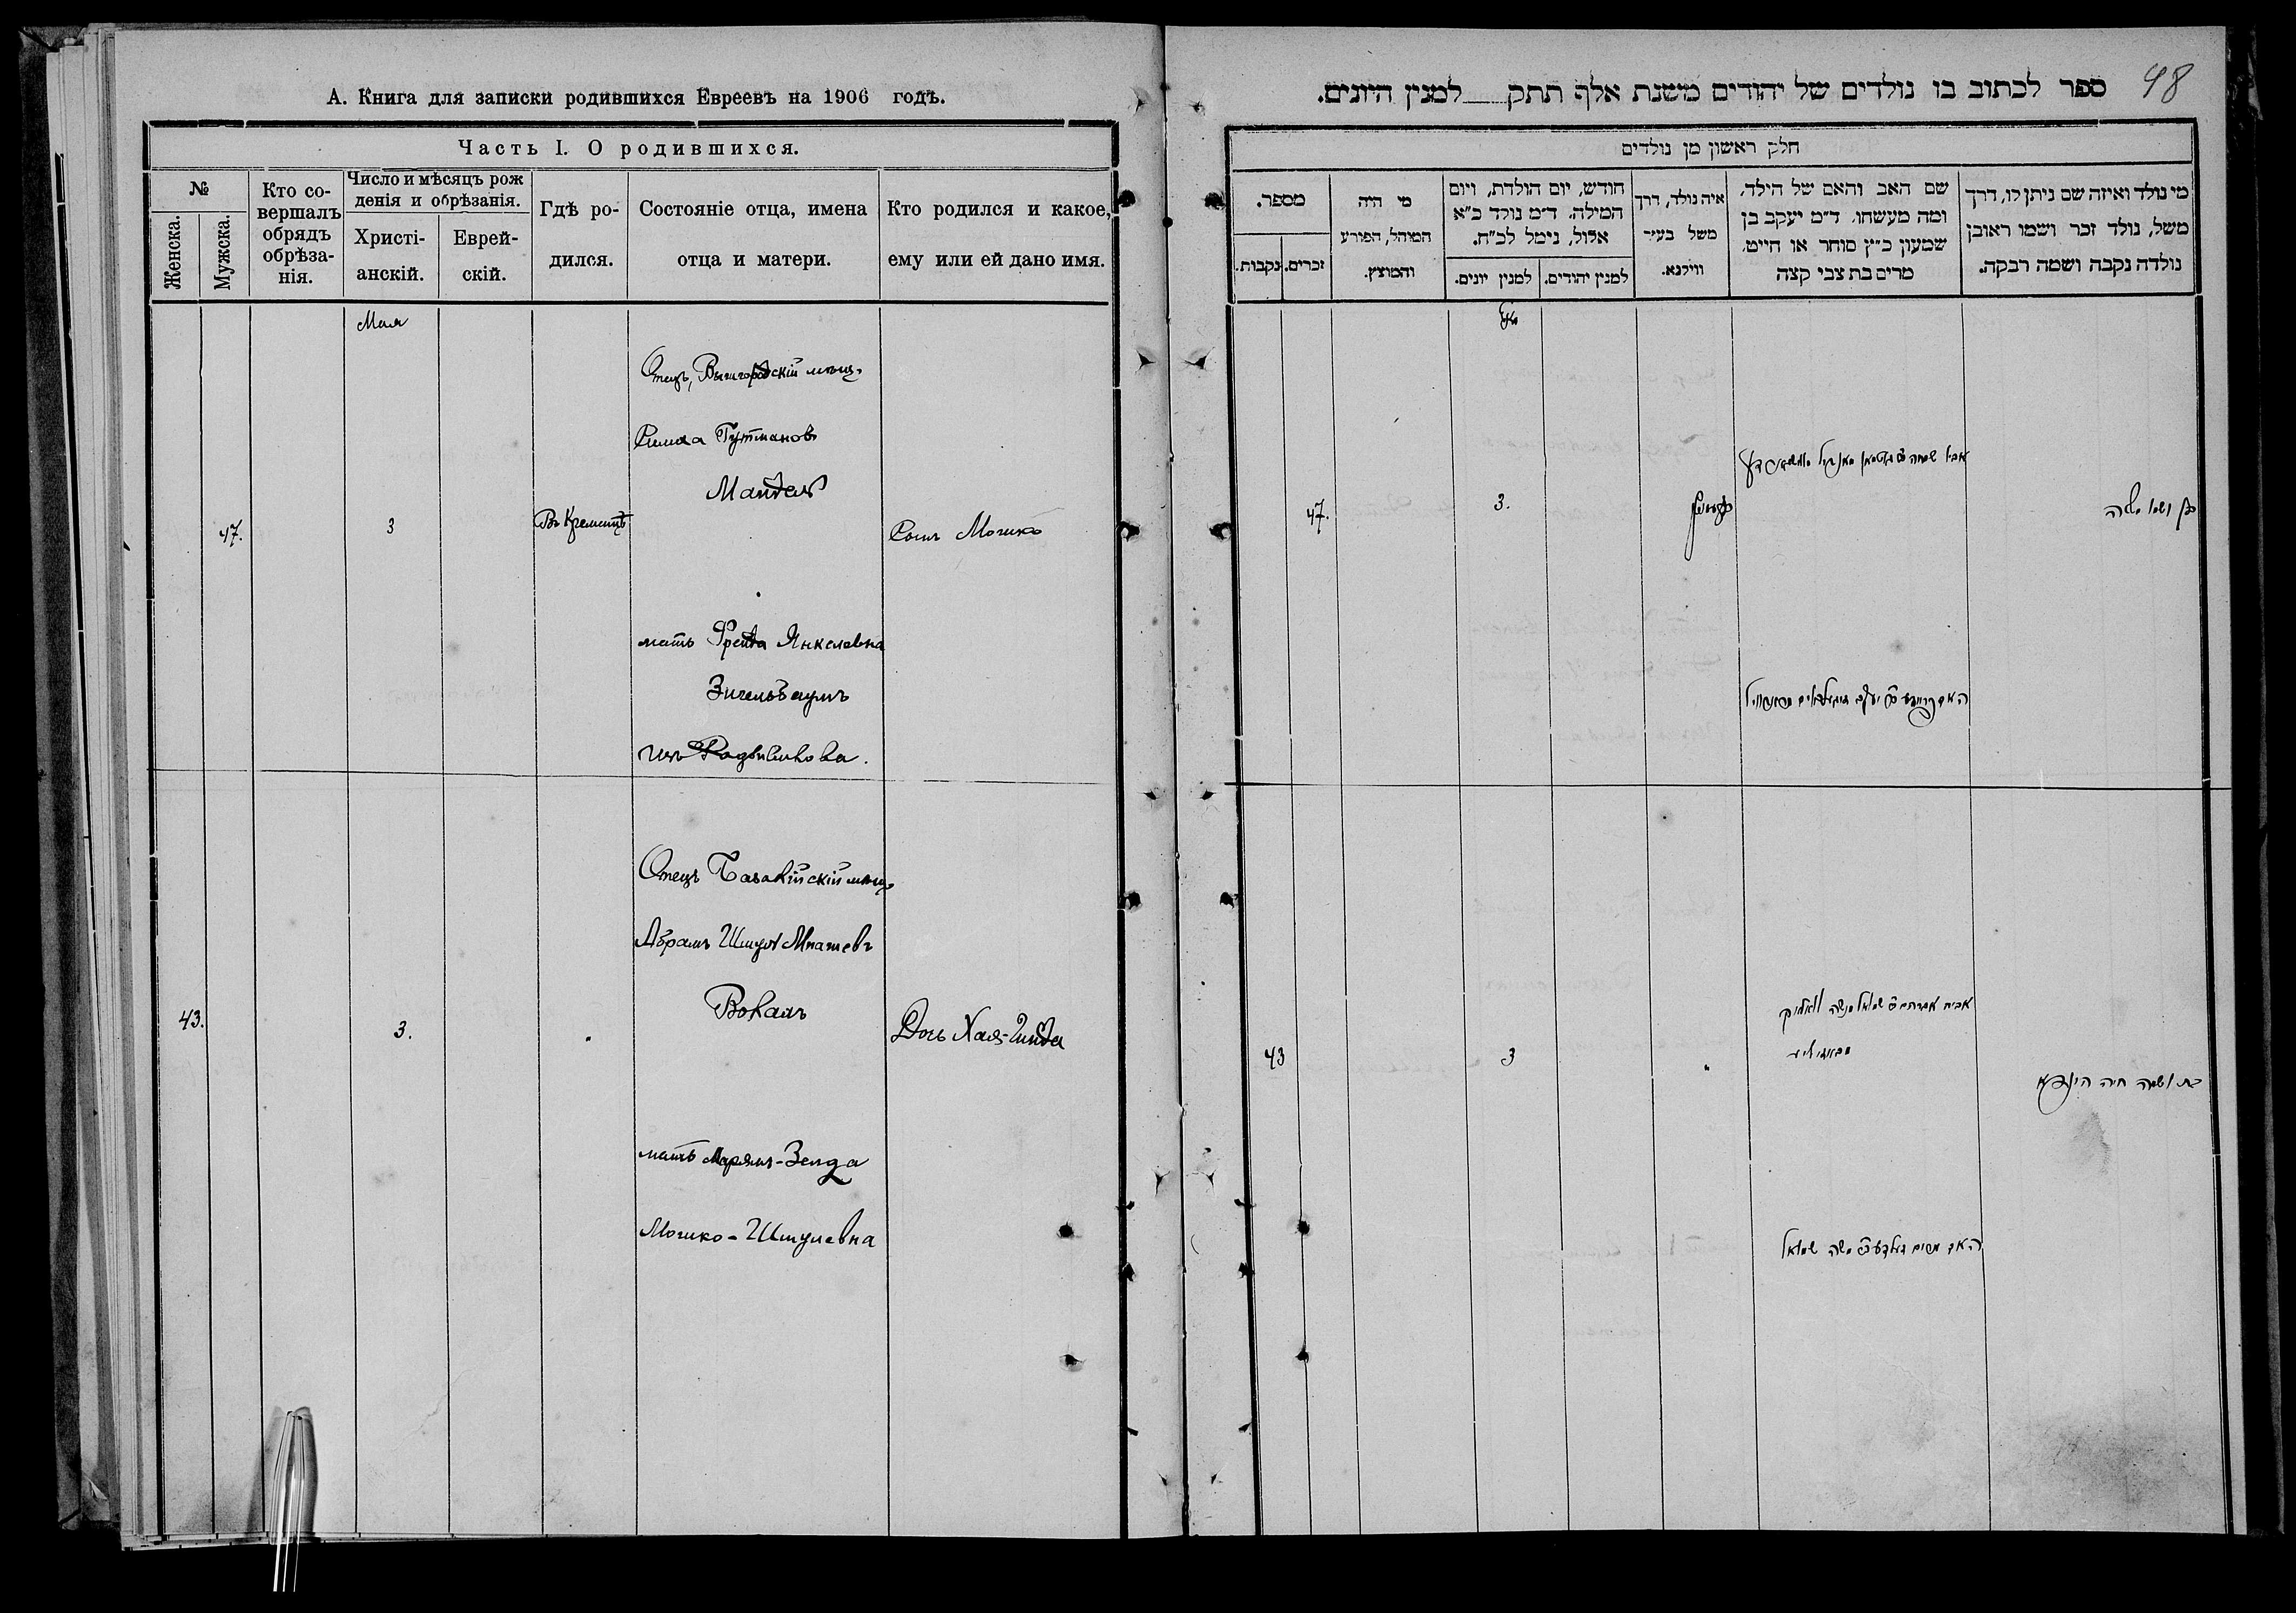 А. Книга для записки родившихся Евреевъ на 1906 годъ.
Часть I. О родившихся.
№
Женска.
Мужска.
Кто со-
вершалъ
обрядъ
обрѣза-
нія.
Число и мѣсяцъ рож
денія и обрѣзанія.
Христі-
анскій.
Еврей-
скій.
Гдѣ ро-
дился.
Состояніе отца, имена
отца и матери.
Кто родился и какое,
ему или ей дано имя.
Мая
Отецъ, Вышгородскій мѣщ.
Симха Гутманов
Мандель
47.
3
Въ Кременцѣ
Сынъ Мошко
мать Фрейда Янкелевна
Зигельбаумъ
изъ Радзивилова.
Отецъ Базалійскій мѣщ.
Абрамъ Шмул Мнашевъ
Вокалъ
43.
3.
Дочь Хая-Гинда
мать Марямъ-Зелда
Мошко-Шмулевна
48
ספר לכתוב בו נולדים של יהודים משנת אלף תתק למנין היונים.
חלק ראשון מן נולדים
מספר.
זכרים.
נקבות.
מי היה
המוהל, הפורע
והמוצץ.
חודש, יום הולדת, ויום
המילה. ד״מ נולד כ״א
אלול, נימל לכ״ח.
למנין יהודים.
למנין יונים.
איה נולד, דרך
משל בעיר
ווילנא.
שם האב והאם של הילד,
ומה מעשהו. ד״מ יעקב בן
שמעון כ״ץ סוחר או חייט.
מרים בת צבי קצה
מי נולד ואיזה שם ניתן לו, דרך
משל, נולד זכר ושמו ראובן
נולדה נקבה ושמה רבקה.
מאי
47.
3.
בן ושמו משה
43
3
בת ושמה חיה הינדא